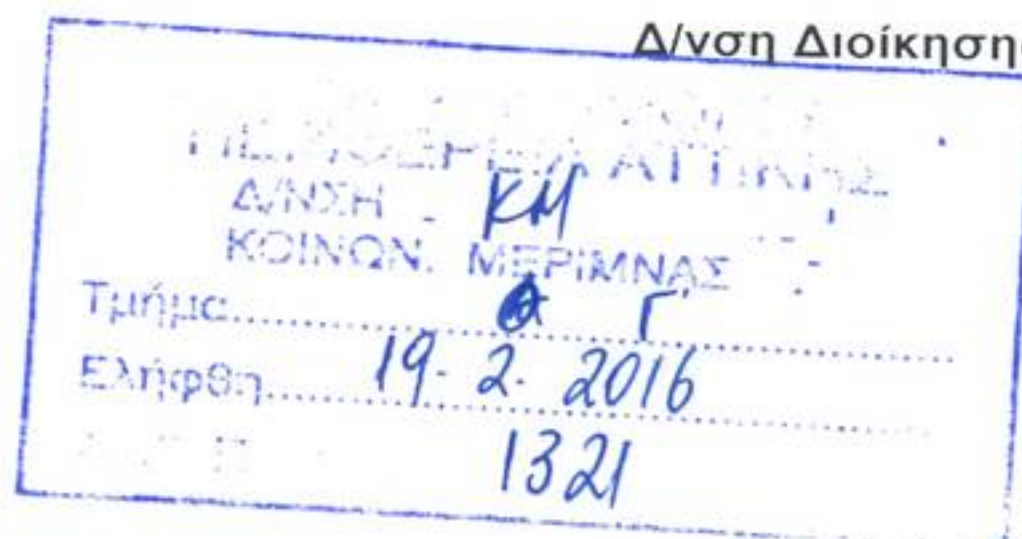 Δ/νση Διοίκησης
ΠΕΡΙΦΕΡΕΙΑ ΑΤΤΙΚΗΣ
Δ/ΝΣΗ ΚΜ
ΚΟΙΝΩΝ. ΜΕΡΙΜΝΑΣ
Τμήμα.............. Γ
Ελήφθη..... 19. 2. 2016
1321